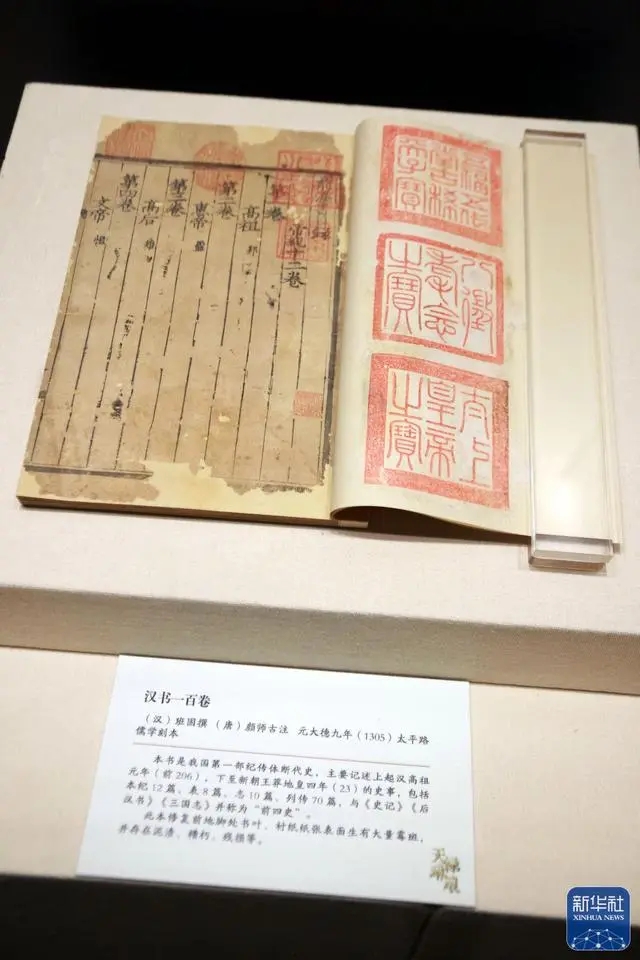 帝紀十二卷
第一卷
高祖 邦
第二卷
惠帝 盈
第三卷
高后 雉
第四卷
文帝 恒
八徵
耄念
之寶
太上
皇帝
之寶
汉书一百卷
（汉）班固撰 （唐）颜师古注 元大德九年（1305）太平路
儒学刻本
本书是我国第一部纪传体断代史，主要记述上起汉高祖
元年（前206），下至新朝王莽地皇四年（23）的史事，包括
本纪12篇、表8篇、志10篇、列传70篇，与《史记》《后
汉书》《三国志》并称为“前四史”。
此本修复前地脚处书叶、衬纸纸张表面生有大量霉斑，
并存在泥渍、糟朽、残损等。
新华社
XINHUA NEWS